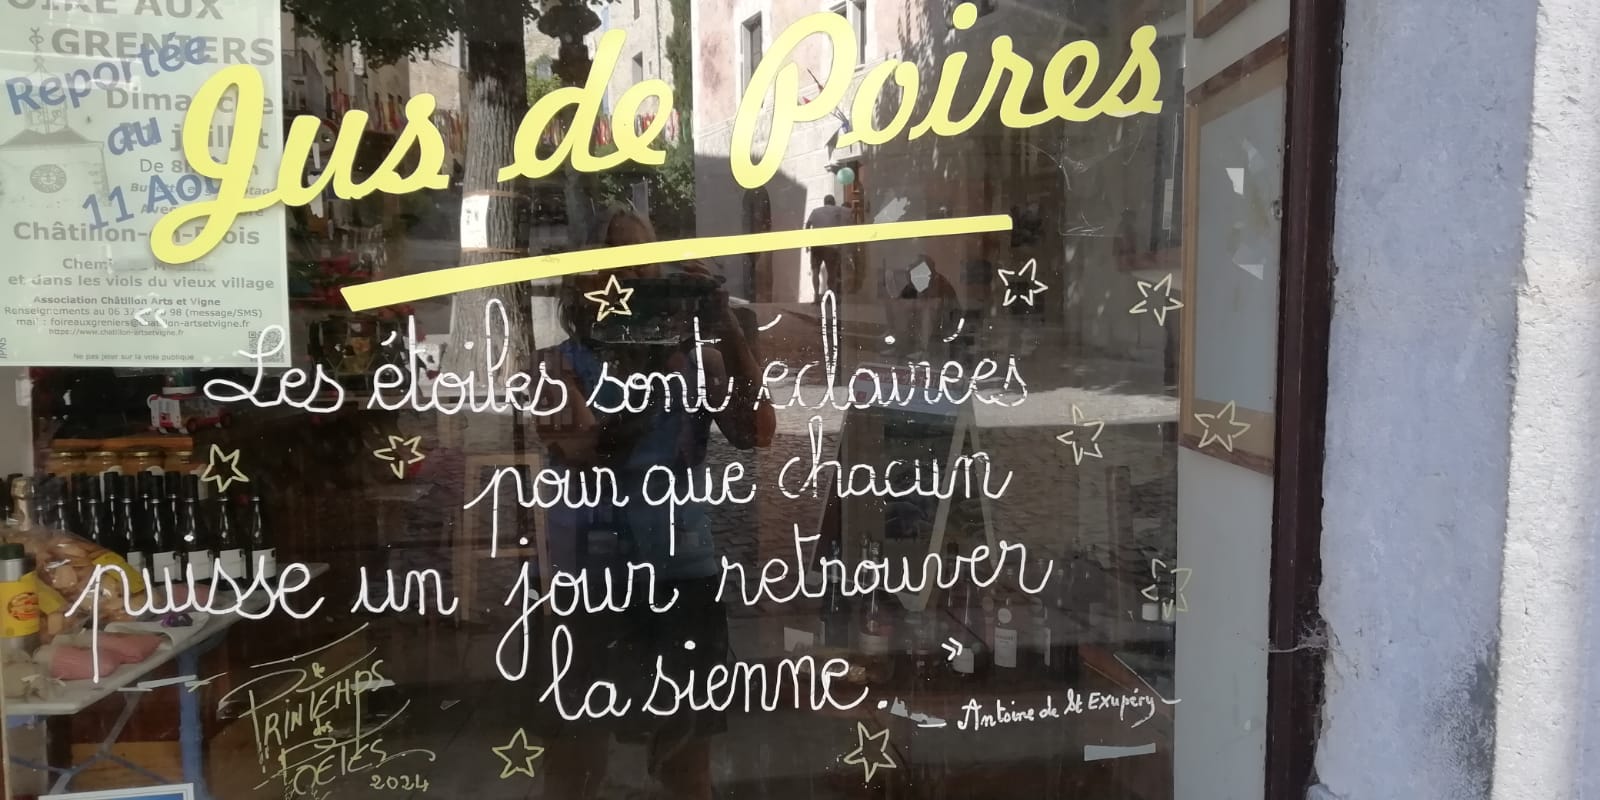 GRENIERS
Reportée
Dimanche
au juillet
De 8
11 Août
Châtillon-en-Diois
et dans les viols du vieux village
Association Châtillon Arts et Vigne
Renseignements au 06 98 (message/SMS)
mail : foireauxgreniers@chatillon-artsetvigne.fr
https://www.chatillon-artsetvigne.fr
Ne pas jeter sur la voie publique
Jus de Poires
« Les étoiles sont éclairées
pour que chacun
puisse un jour retrouver
la sienne. »
_ Antoine de St Exupéry _
Le
PRINTEMPS
des
POETES
2024